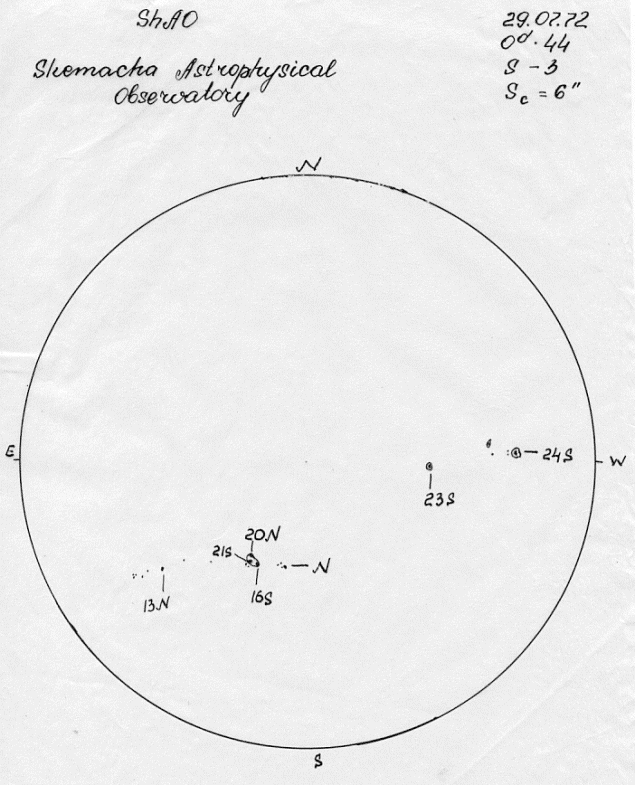 ShAO
Shemacha Astrophysical
Observatory
29.07.72
0d.44
S - 3
Sc = 6"
N
E
W
24S
23S
20N
21S
N
16S
13N
S